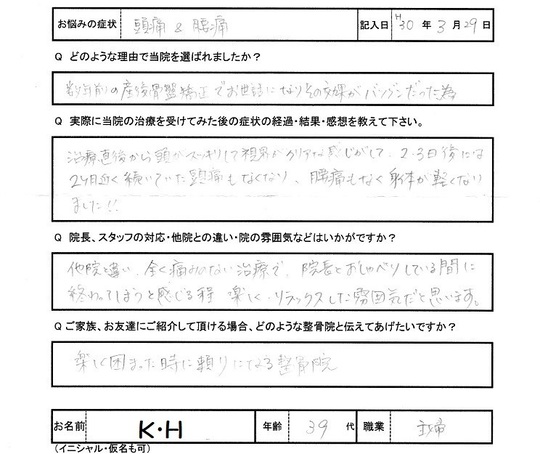 お悩みの症状 頭痛 & 腰痛 記入日 H30年3月29日
Q どのような理由で当院を選ばれましたか？
数年前の産後骨盤矯正でお世話になりその効果がバツグンだった為
Q 実際に当院の治療を受けてみた後の症状の経過・結果・感想を教えて下さい。
治療直後から頭がスッキリして視界がクリアな感じがして、2-3日後には
2ヶ月近く続いていた頭痛もなくなり、腰痛もなく身体が軽くなり
ました!!
Q 院長、スタッフの対応・他院との違い・院の雰囲気などはいかがですか？
他院と違い、全く痛みのない治療で、院長とおしゃべりしている間に
終わってしまうと感じる程 楽しく、リラックスした雰囲気だと思います。
Q ご家族、お友達にご紹介して頂ける場合、どのような整骨院と伝えてあげたいですか？
楽しく困った時に頼りになる整骨院
お名前 K・H 年齢 39 代 職業 主婦
（イニシャル・仮名も可）